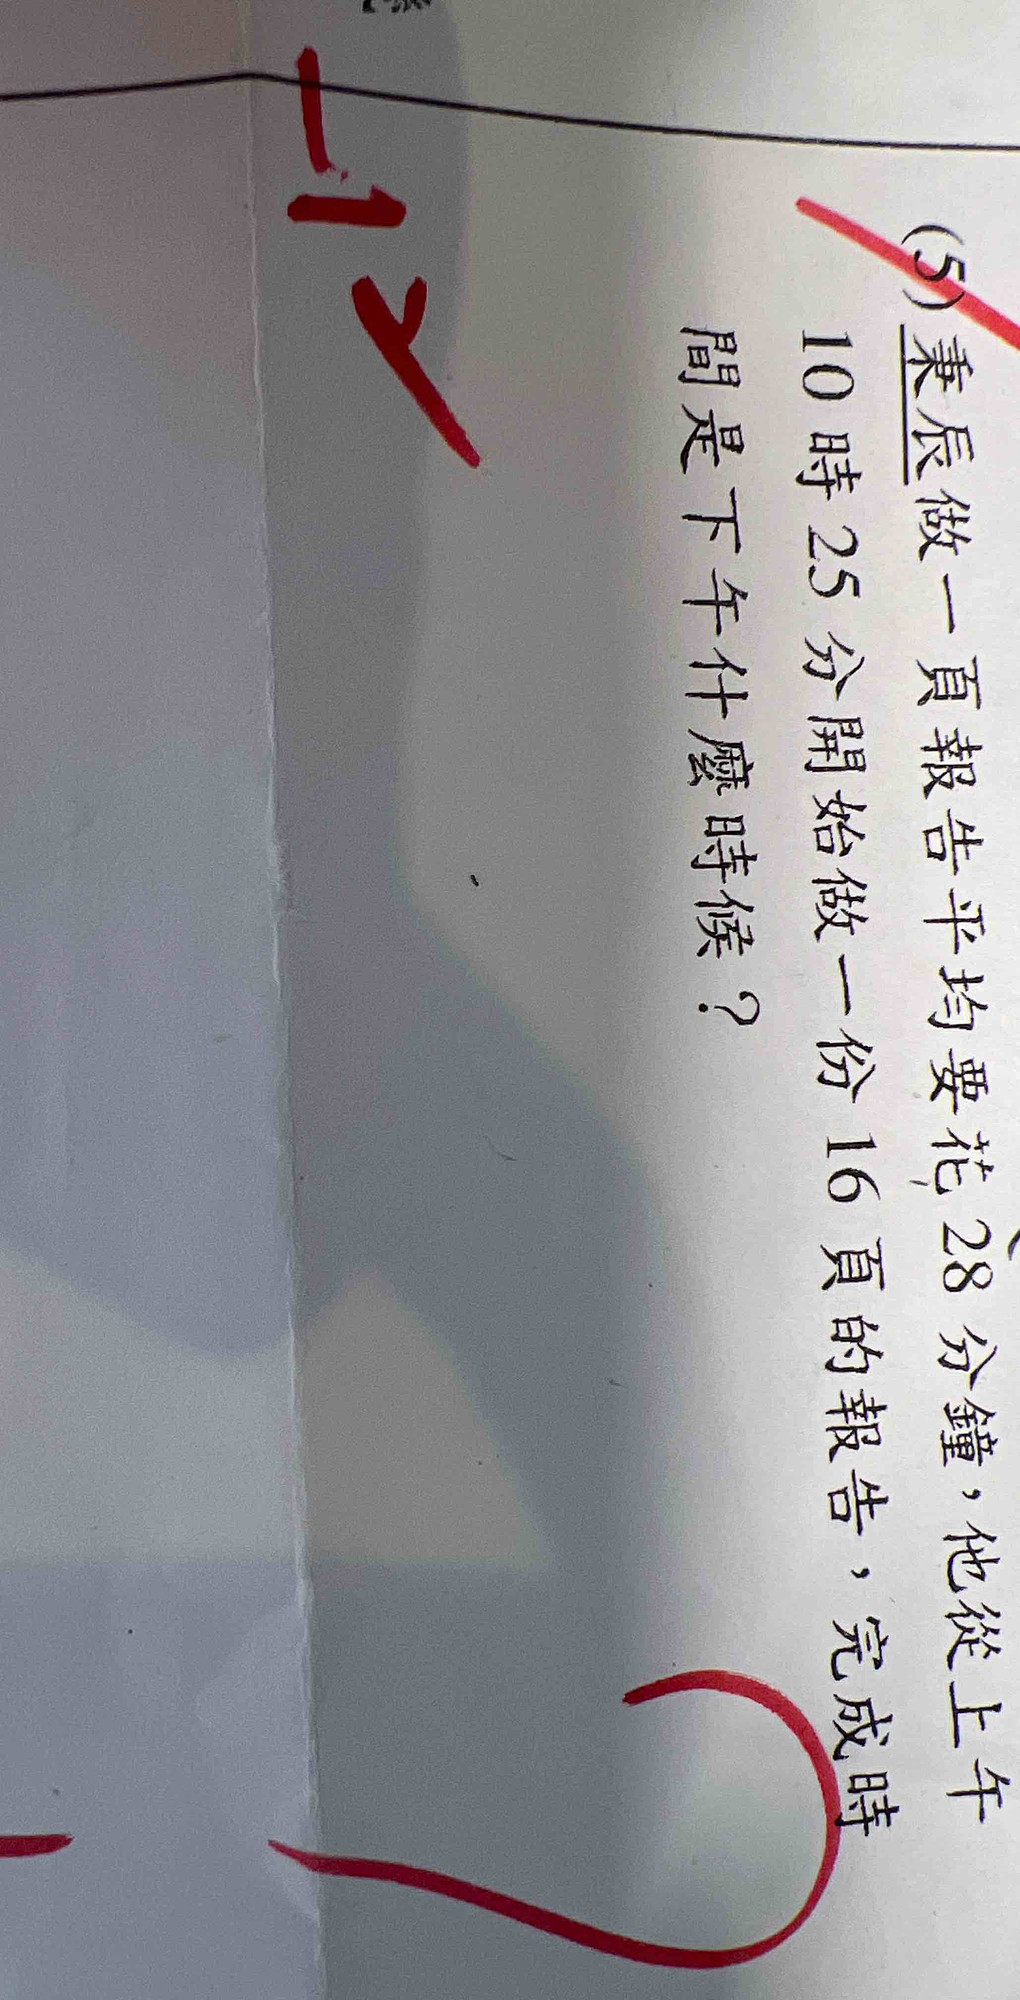 (5) 秉辰做一頁報告平均要花 28 分鐘，他從上午
10 時 25 分開始做一份 16 頁的報告，完成時
間是下午什麼時候？